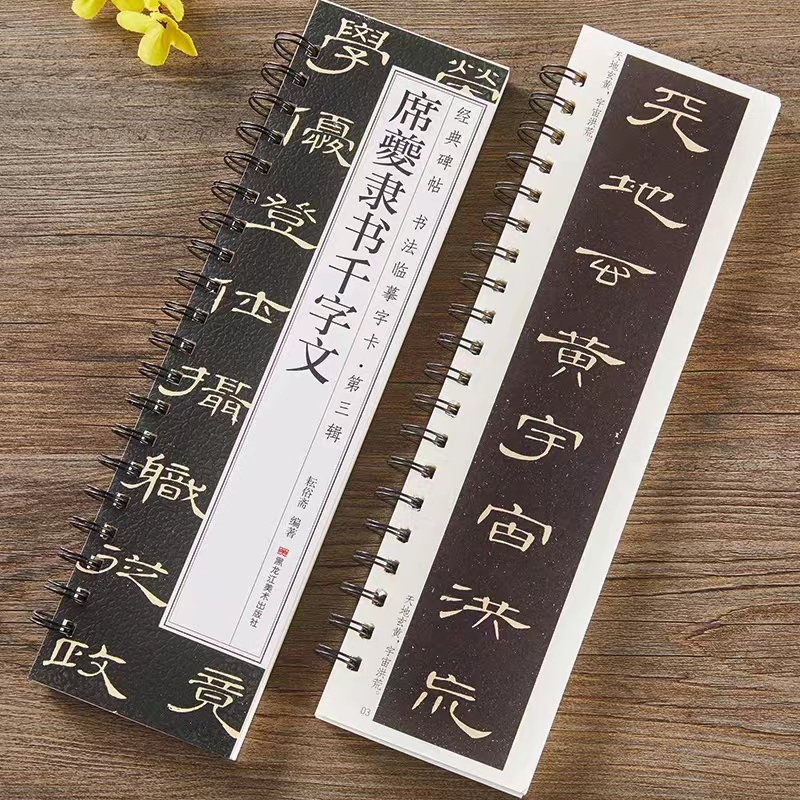 學優登仕攝職從政
榮
竟
经典碑帖 书法临摹字卡·第三辑
席夔隶书千字文
耘俗斋 编著
黑龙江美术出版社
天地玄黄，宇宙洪荒。
天地玄黃宇宙洪荒
天地玄黄，宇宙洪荒。
03